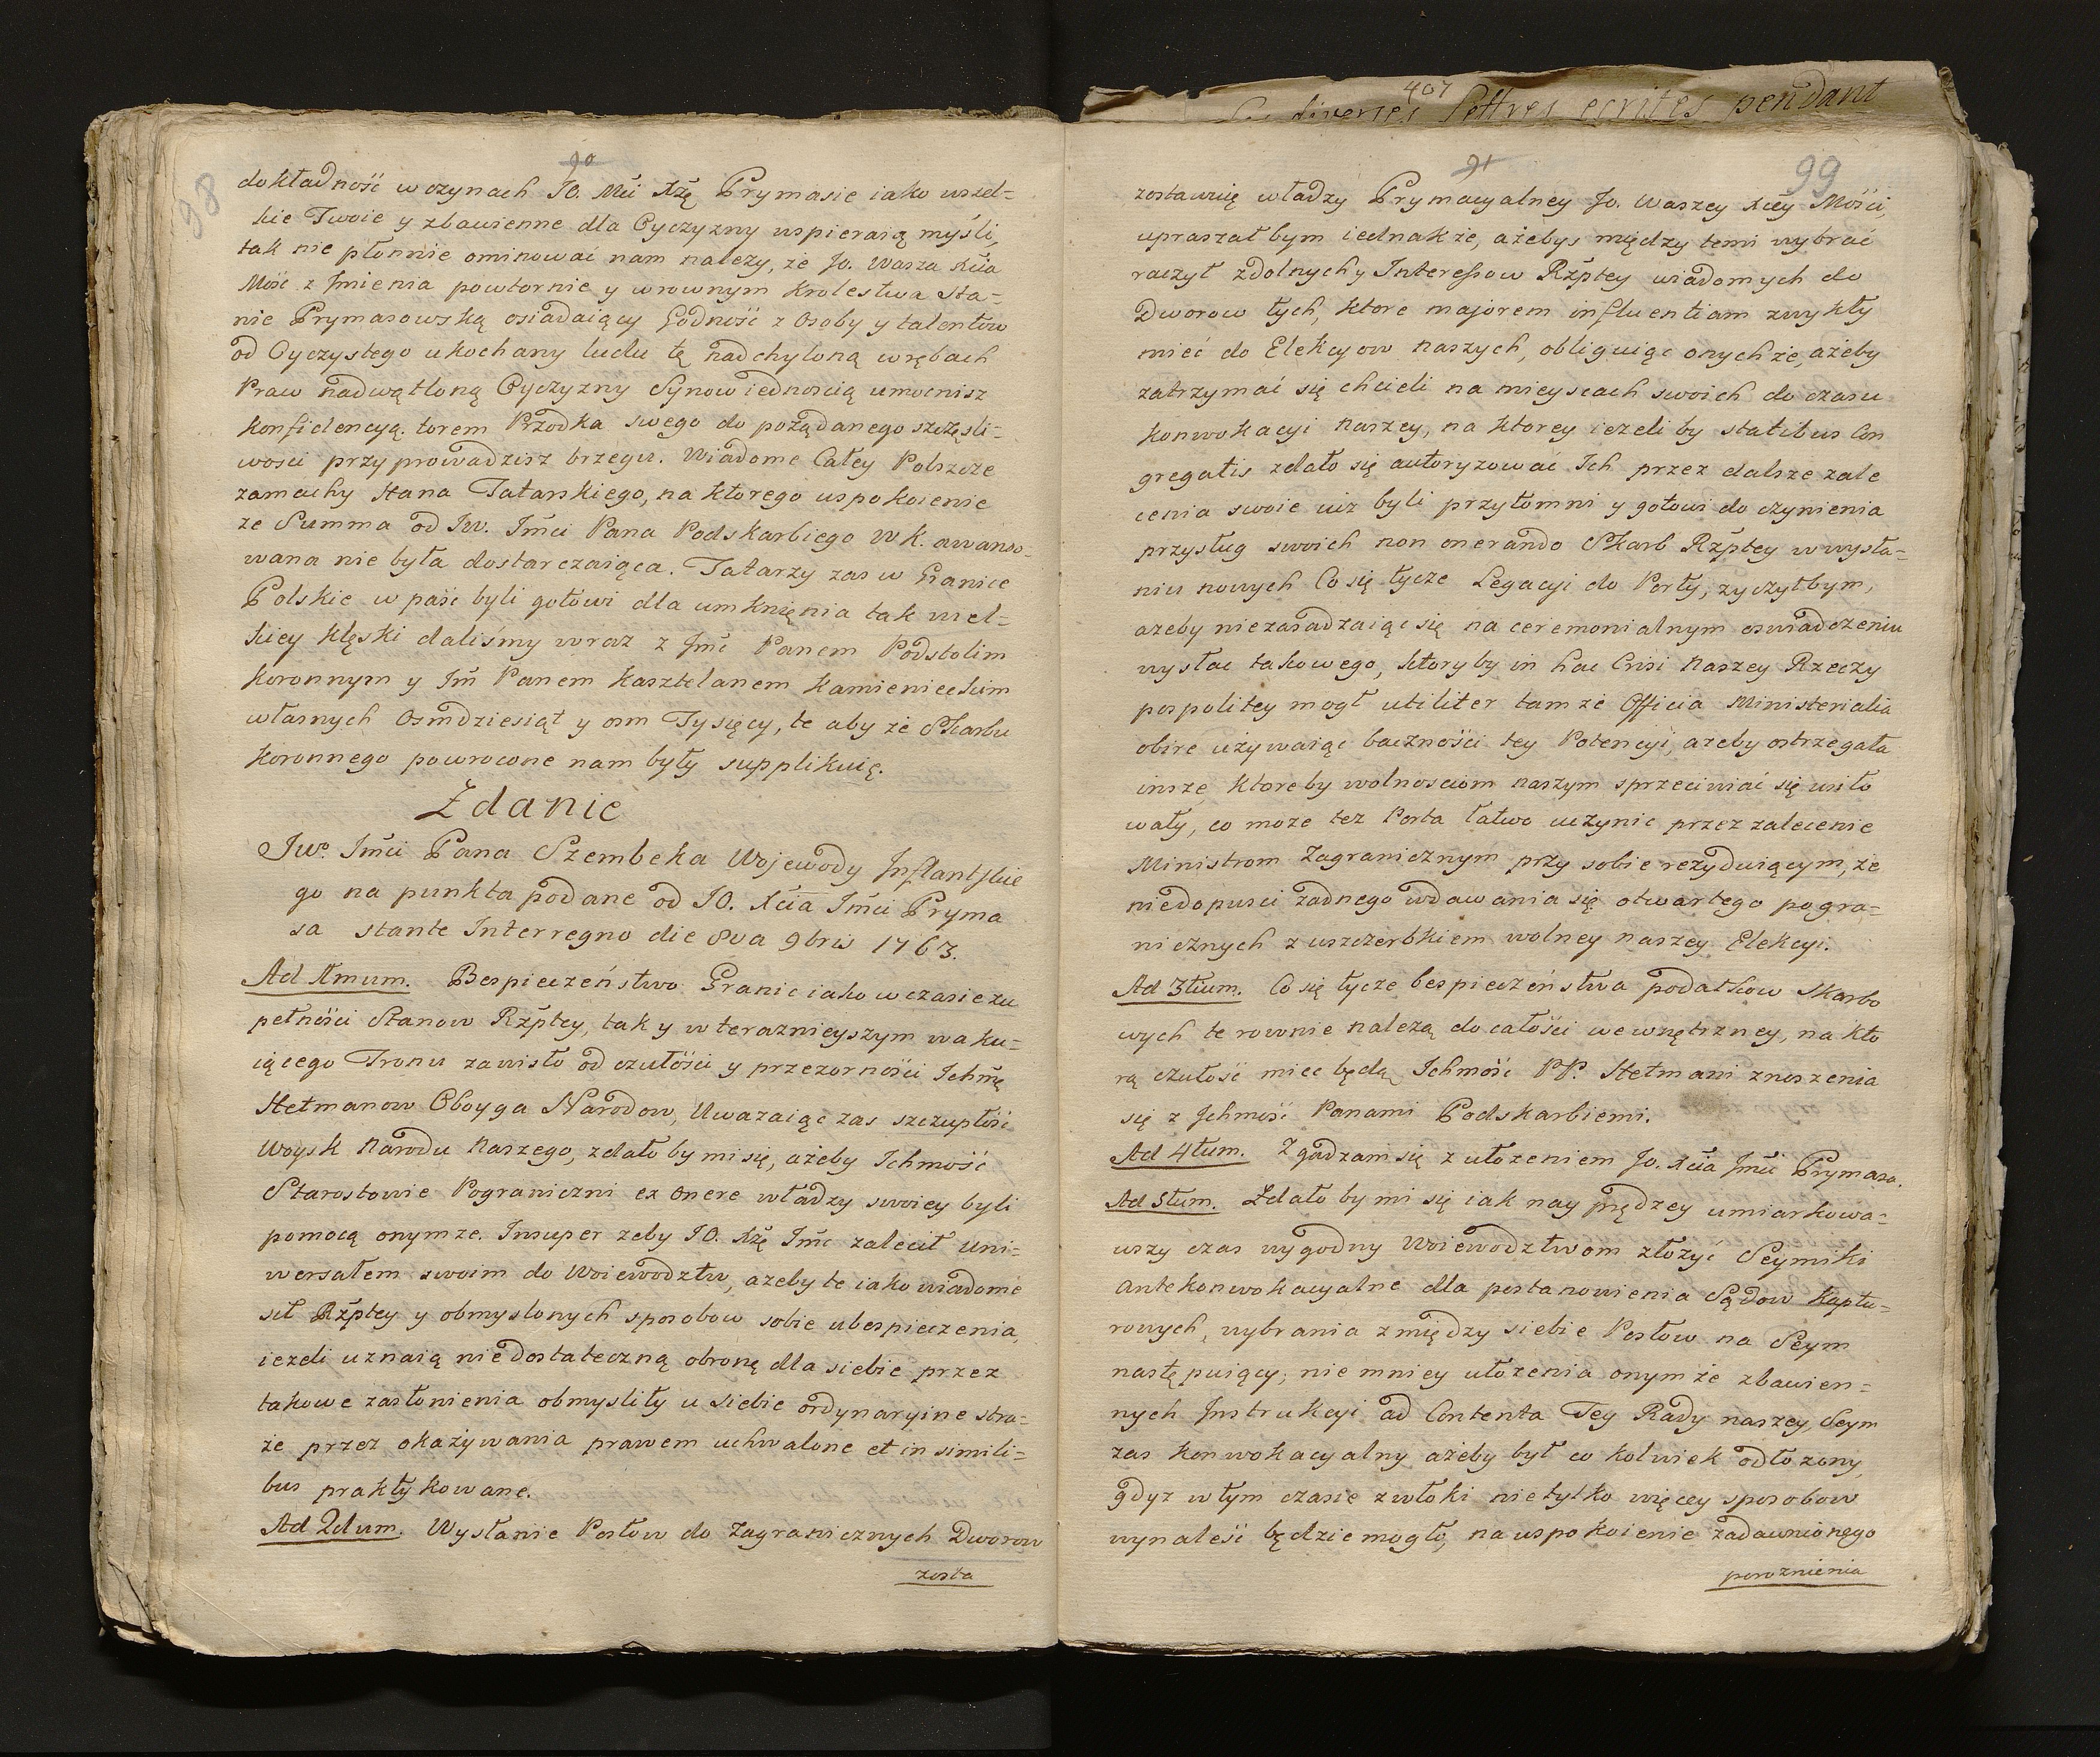 90
98
dokładność w czynach JO. Mći Xżę Prymasie iako wszel-
kie Twoie y zbawienne dla Oyczyzny wspieraią myśli,
tak nie płonnie ominować nam nalezy, że Jo. Wasza Xcia
Mość z Imienia powtornie y wrownym Krolestwa Sta-
nie Prymasowską osiadaiący Godność z Osoby y talentow
od Oyczystego ukochany ludu tę nadchyloną w rębach
Praw nadwątloną Oyczyzny Synow iednoscią umocnisz
konfidencyą. torem Przodka swego do pożądanego szczęsli-
wosci przyprowadzisz brzegu. Wiadome Całey Polszcze
zamachy Hana Tatarskiego, na ktorego uspokoienie
ze Summa od Jw. Jmći Pana Podskarbiego W K. awanso-
wana nie była dostarczaiąca. Tatarzy zas w Granice
Polskie wpaść byli gotowi dla umknięnia tak wiel-
kiey klęski daliśmy wraz z Jmć Panem Podstolim
Koronnym y Jm̃ Panem Kasztelanem Kamienieckim
własnych Osmdziesiąt y osm Tysięcy, te aby że Skarbu
Koronnego powrocone nam były supplikuię.
Zdanie
Jwo. Jmći Pana Szembeka Wojewody Inflantskie
go na punkta podane od JO. Xcia Jmći Pryma
sa stante Interregno die 8va 9bris 1763.
Ad 1mum. Bespieczeństwo Granic iako w czasie zu
pełności Stanow Rzptey, tak y w teraznieyszym waku-
iącego Tronu zawisło od czułości y przezorności Ichmę
Hetmanow Oboyga Narodow, Uwazaiąc zas szczupłość
Woysk Narodu Naszego, zdało by mi się, ażeby Ichmość
Starostowie Pograniczni ex onere władzy swoiey byli
pomocą onymze. Insuper zeby JO. Xżę Jmć zalecił Uni-
wersałem swoim do Woiewodztw, azeby te iako wiadome
sił Rzptey y obmyslonych sposobow sobie ubespieczenia,
iezeli uznaią niedostateczną obronę dla siebie przez
takowe zasłonienia obmysliły u siebie ordynaryine stra-
że przez okazywania prawem uchwalone et in simili-
bus praktykowane.
Ad 2dum. Wysłanie Posłow do Zagranicznych Dworow
zosta
407
diverses lettres ecrites pendant
91
99
zostawuię władzy Prymacyalney Jo. Waszey Xcey Mości,
upraszał bym iednakże, ażebys między temi wybrać
raczył zdolnych y Interessow Rzptey wiadomych do
Dworow tych, ktore majorem influentiam zwykły
mieć do Elekcyow naszych, obliguiąc onychże, ażeby
zatrzymać się chcieli na mieyscach swoich do czasu
konwokacyi naszey, na ktorey iezeli by statibus Con
gregatis zdało się autoryzować Ich przez dalsze zale
cenia swoie iuż byli przytomni y gotowi do czynienia
przysług swoich non onerando Skarb Rzptey w wysła-
niu nowych Co się tycze Legacyi do Porty, zyczyłbym,
azeby niezasadzaiąc się na ceremonialnym oswiadczeniu
wysłac takowego, ktoryby in hac Crisi naszey Rzeczy
pospolitey mogł utiliter tamże Officia Ministerialia
obire używaiąc baczności tey Potencyi, azeby ostrzegała
insze, ktoreby wolnosciom naszym sprzeciwiać się usiło
wały, co moze tez Porta łatwo uczynic przez zalecenie
Ministrom Zagranicznym przy sobie rezyduiącym, że
niedopusci żadnego wdawania się otwartego pogra-
nicznych z uszczerbkiem wolney naszey Elekcyi.
Ad 3tium. Co się tycze bespieczeństwa podatkow Skarbo
wych te rownie należą do całości wewnętrzney, na kto
rą czułość miec będą Ichmość PP. Hetmani znoszenia
się z Jchmość Panami Podskarbiemi.
Ad 4tum. Zgadzam się z ułożeniem Jo. Xcia Jmći Prymasa.
Ad 5tum. Zdało by mi się iak nay prędzey umiarkowa-
wszy czas wygodny Woiewodztwom złożyć Seymiki
Antekonwokacyalne dla postanowienia Sądow Kaptu-
rowych, wybrania z między siebie Posłow na Seym
następuiący, nie mniey ułożenia onymże zbawien-
nych Instrukcyi ad Contenta Tey Rady naszey, Seym
zas konwokacyalny ażeby był co kolwiek odłożony,
gdyz w tym czasie zwłoki nietylko więcey sposobow
wynaleść będzie mogło, na uspokoienie zadawnionego
poroznienia